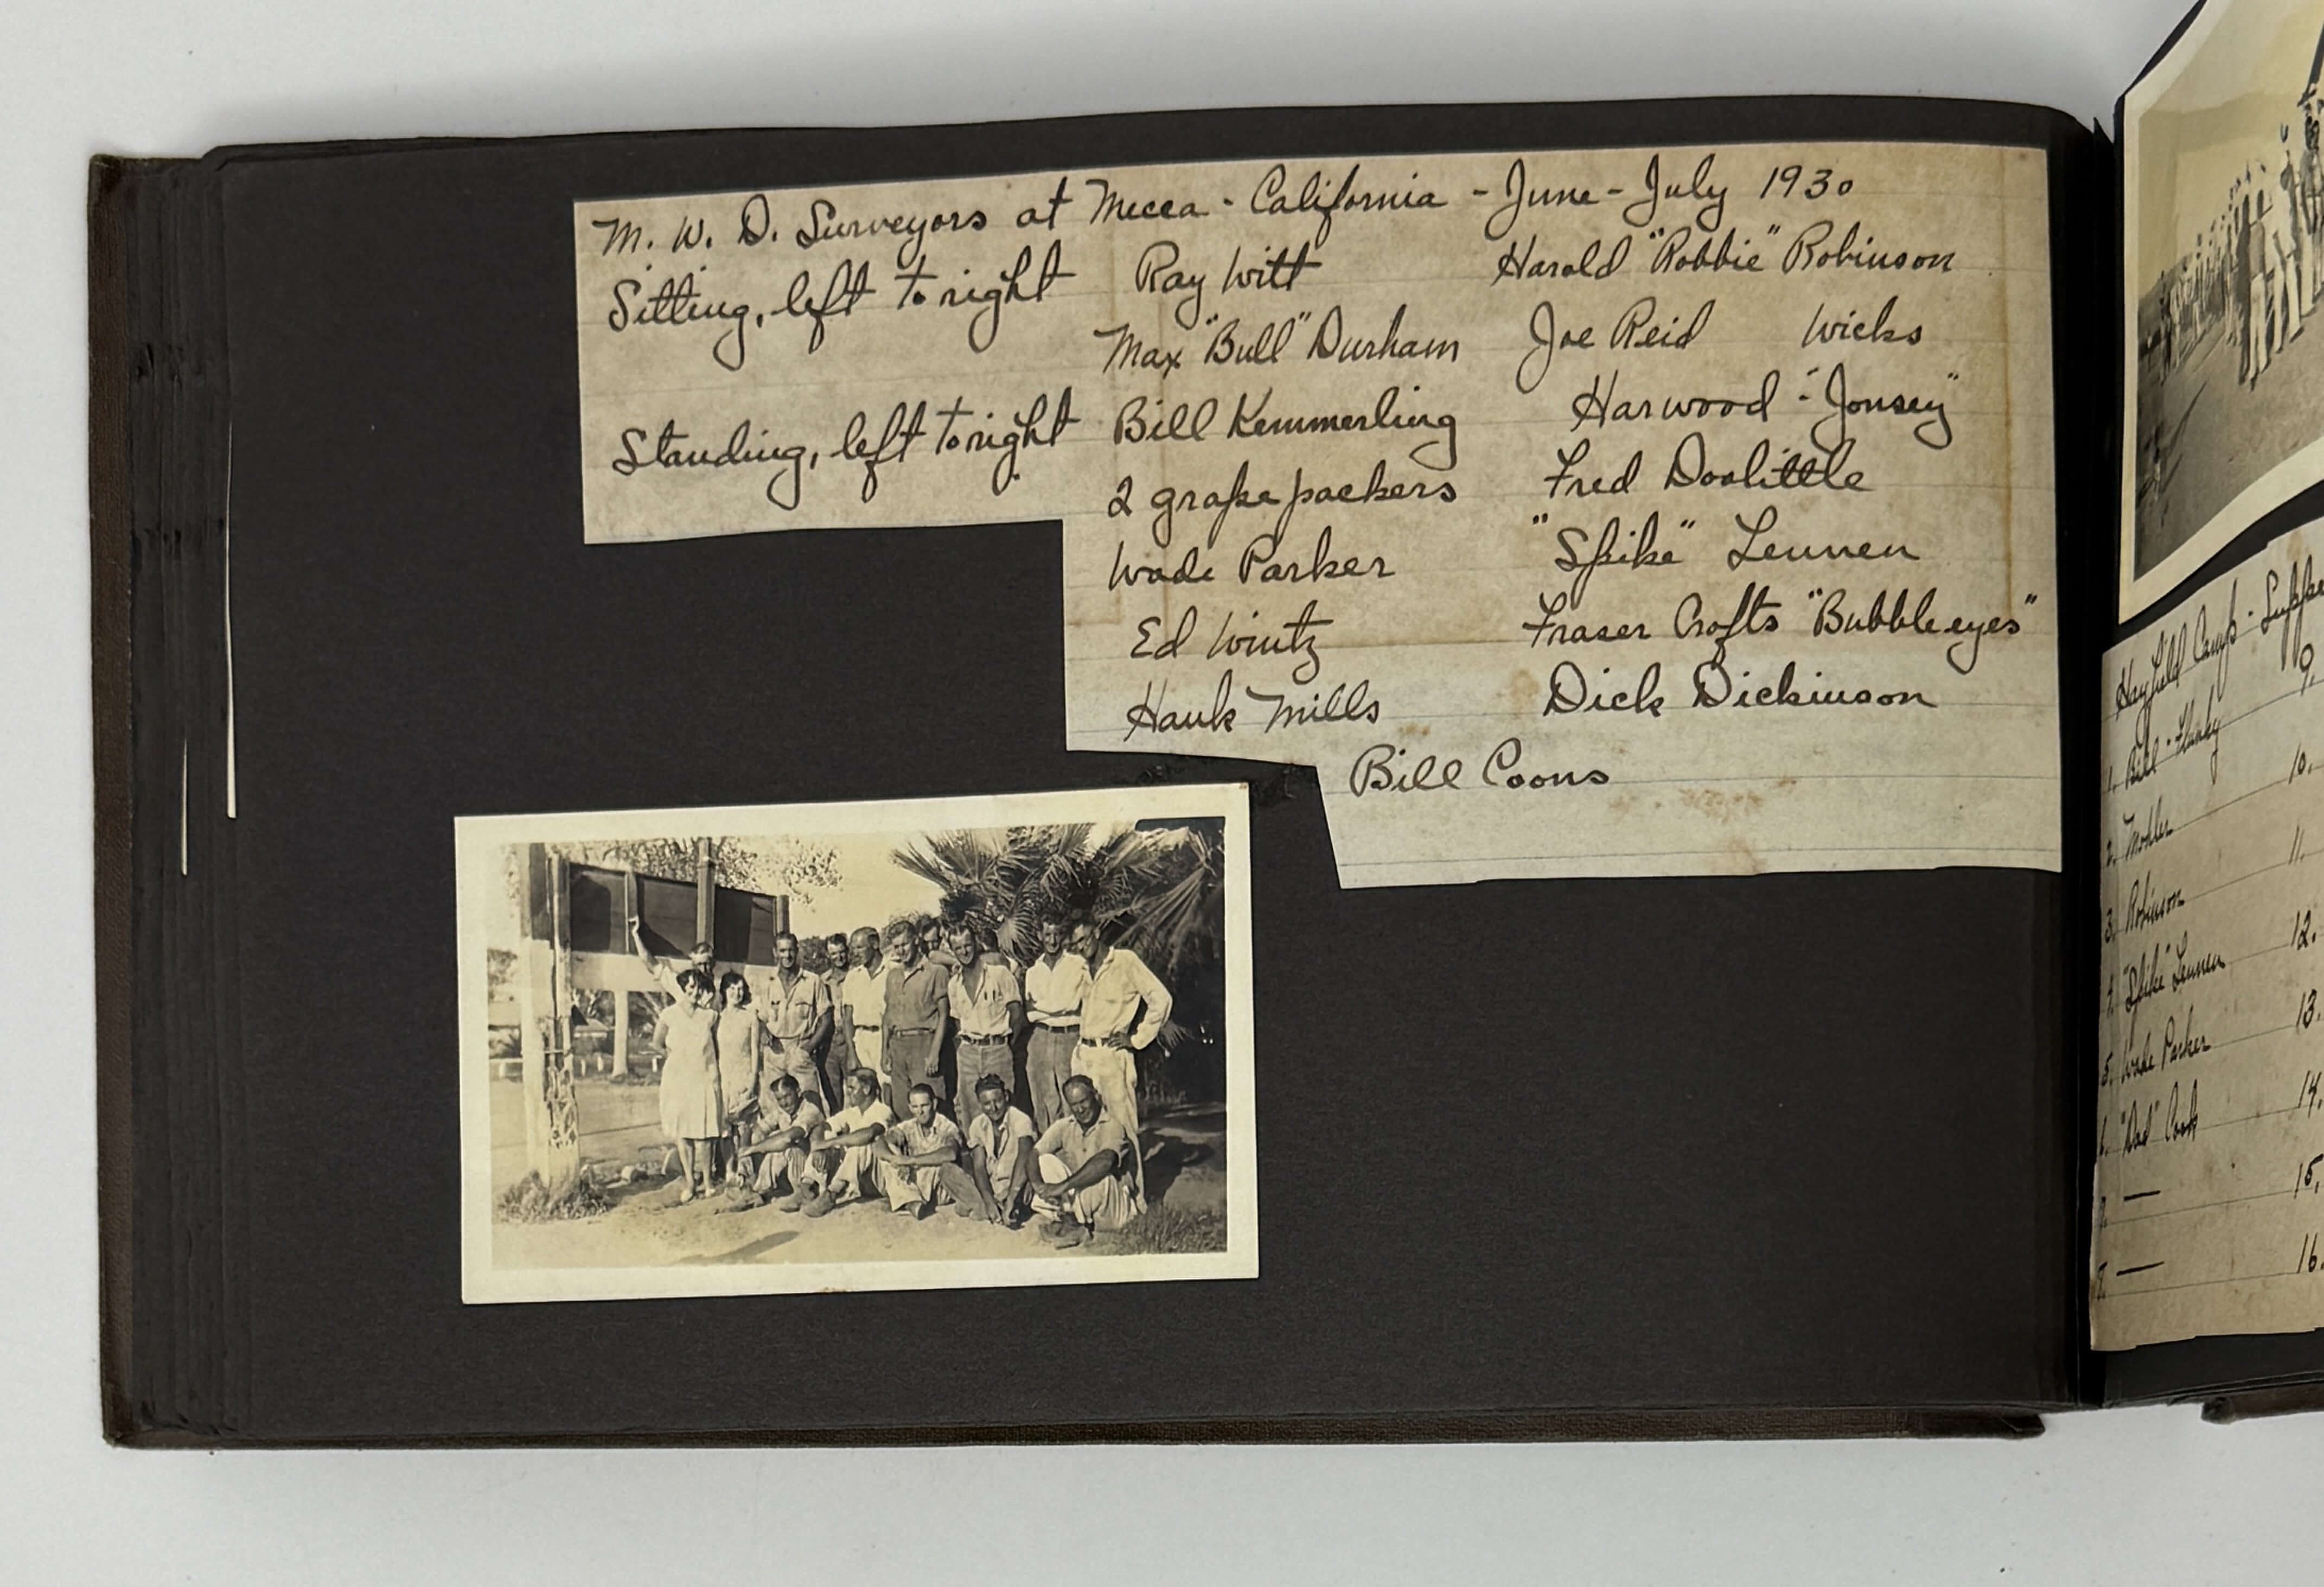 M. W. D. Surveyors at Mecca - California - June - July 1930
Sitting, left to right Ray Witt Harold "Robbie" Robinson
Max "Bull" Durham Joe Reid Wicks
Standing, left to right Bill Kemmerling Harwood - "Jonsey"
2 grape packers Fred Doolittle
Wade Parker "Spike" Lennen
Ed Wintz Fraser Crofts "Bubble eyes"
Hank Mills Dick Dickinson
Bill Coons
Hayfield Camp -
9.
1. Bill
10.
2.
11.
3. Robinson
12.
4. "Spike" Lennen
13.
5. Wade Parker
14.
6. "Dad" Cook
15.
7. —
16.
8. —